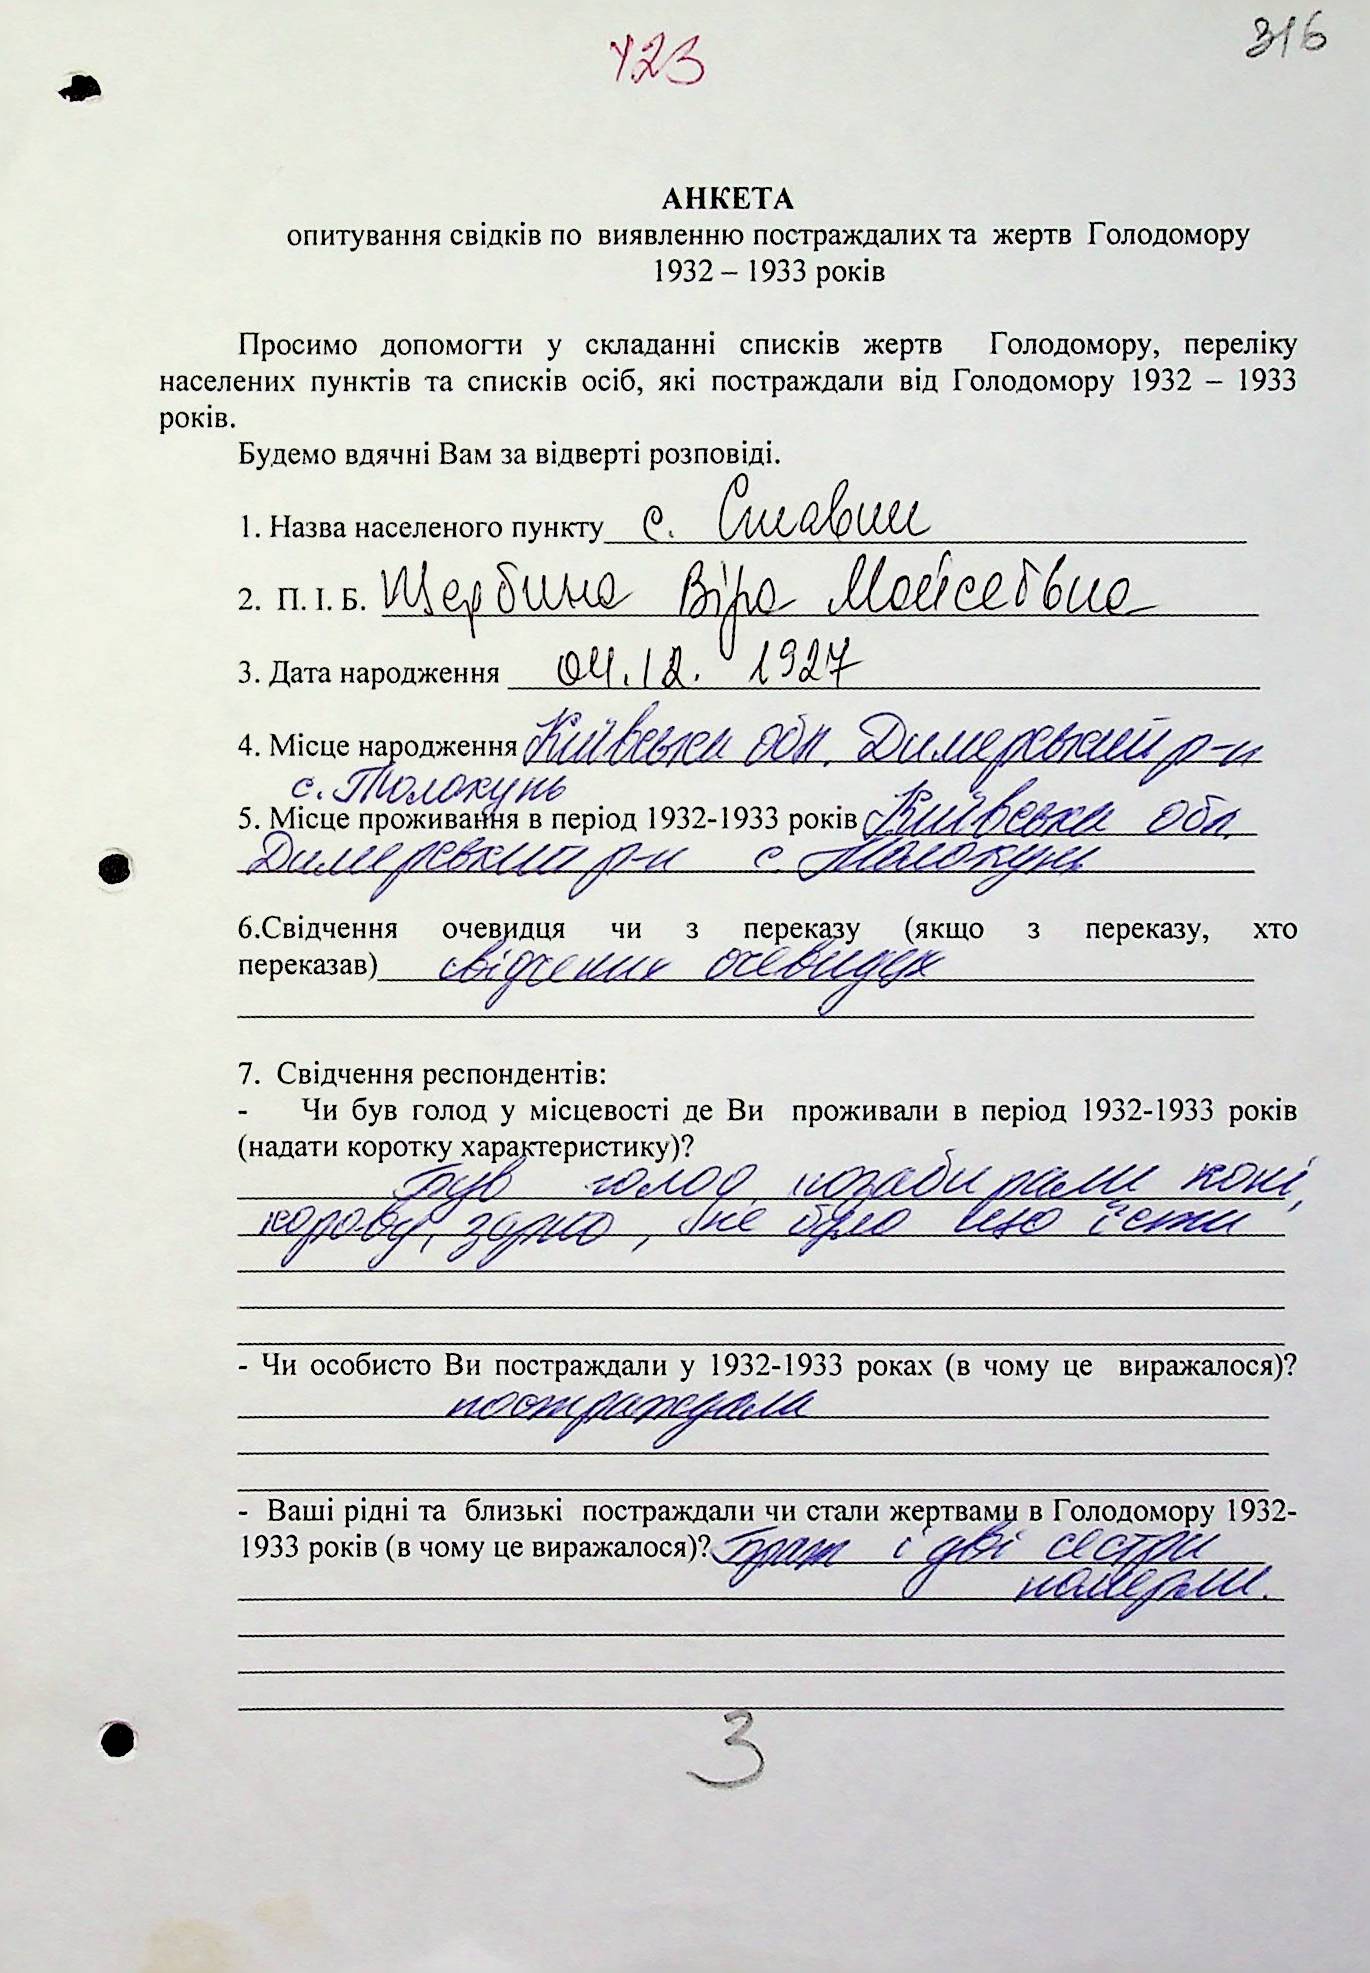 123
316
АНКЕТА
опитування свідків по виявленню постраждалих та жертв Голодомору
1932 – 1933 років
Просимо допомогти у складанні списків жертв Голодомору, переліку
населених пунктів та списків осіб, які постраждали від Голодомору 1932 – 1933
років.
Будемо вдячні Вам за відверті розповіді.
1. Назва населеного пункту с. Ставки
2. П. І. Б. Щербина Віра Мойсеєвна
3. Дата народження 04.12. 1927
4. Місце народження Київська обл. Димерський р-н
с. Толокунь
5. Місце проживання в період 1932-1933 років Київська обл.
Димерський р-н с. Толокунь
6.Свідчення очевидця чи з переказу (якщо з переказу, хто
переказав) свідчення очевидця
7. Свідчення респондентів:
- Чи був голод у місцевості де Ви проживали в період 1932-1933 років
(надати коротку характеристику)?
Був голод, позабирали коні,
корову, зерно, не було що їсти
- Чи особисто Ви постраждали у 1932-1933 роках (в чому це виражалося)?
постраждала
- Ваші рідні та близькі постраждали чи стали жертвами в Голодомору 1932-
1933 років (в чому це виражалося)? Брат і дві сестри
померли.
3